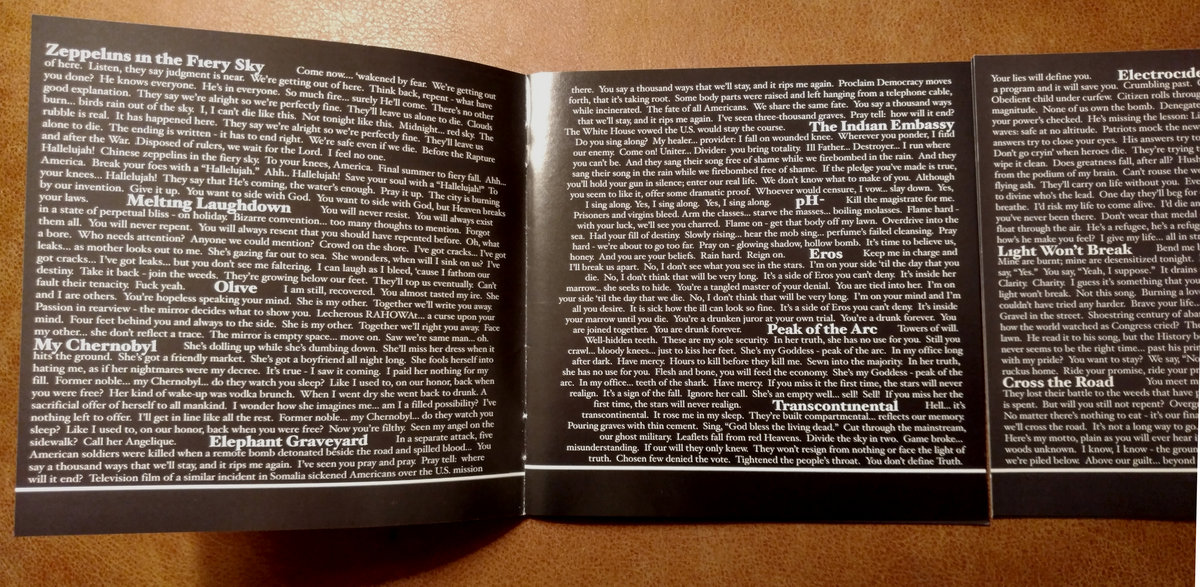 Zeppelins in the Fiery Sky Come now... 'wakened by fear. We're getting out
of here. Listen, they say judgment is near. We're getting out of here. Think back, repent - what have
you done? He knows everyone. He's in everyone. So much fire... surely He'll come. There's no other
good explanation. They say we're alright so we're perfectly fine. They'll leave us alone to die. Clouds
burn... birds rain out of the sky. I, I can't die like this. Not tonight like this. Midnight... red sky. The
rubble is real. It has happened here. They say we're alright so we're perfectly fine. They'll leave us
alone to die. The ending is written - it has to end right. We're safe even if we die. Before the Rapture
and after the War. Disposed of rulers, we wait for the Lord. I feel no one.
Hallelujah! Chinese zeppelins in the fiery sky. To your knees, America. Final summer to fiery fall. Ahh...
America. Break your foes with a "Hallelujah." Ahh.. Hallelujah! Save your soul with a "Hallelujah!" To
your knees... Hallelujah! They say that He's coming, the water's enough. Pray it up. The city is burning
by our invention. Give it up. You want to side with God. You want to side with God, but Heaven breaks
your laws. Melting Laughdown You will never resist. You will always exist
in a state of perpetual bliss - on holiday. Bizarre convention... too many thoughts to mention. Forgot
them all. You will never repent. You will always resent that you should have repented before. Oh, what
a bore. Who needs attention? Anyone we could mention? Crowd on the shore. I've got cracks... I've got
leaks... as mother looks out to me. She's gazing far out to sea. She wonders, when will I sink on us? I've
got cracks... I've got leaks... but you don't see me faltering. I can laugh as I bleed, 'cause I fathom our
destiny. Take it back - join the weeds. They're growing below our feet. They'll top us eventually. Can't
fault their tenacity. Fuck yeah. Olive I am still, recovered. You almost tasted my ire. She
and I are others. You're hopeless speaking your mind. She is my other. Together we'll write you away.
Passion in rearview - the mirror decides what to show you. Lecherous RAHOWAt... a curse upon your
mind. Four feet behind you and always to the side. She is my other. Together we'll right you away. Face
my other... she don't reflect a trace. The mirror is empty space... move on. Saw we're same man... oh.
My Chernobyl She's dolling up while she's dumbing down. She'll miss her dress when it
hits the ground. She's got a friendly market. She's got a boyfriend all night long. She fools herself into
hating me, as if her nightmares were my decree. It's true - I saw it coming. I paid her nothing for my
fill. Former noble... my Chernobyl... do they watch you sleep? Like I used to, on our honor, back when
you were free? Her kind of wake-up was vodka brunch. When I went dry she went back to drunk. A
sacrificial offer of herself to all mankind. I wonder how she imagines me... am I a filled possibility? I've
nothing left to offer. I'll get in line like all the rest. Former noble... my Chernobyl... do they watch you
sleep? Like I used to, on our honor, back when you were free? Now you're filthy. Seen my angel on the
sidewalk? Call her Angelique. Elephant Graveyard In a separate attack, five
American soldiers were killed when a remote bomb detonated beside the road and spilled blood... You
say a thousand ways that we'll stay, and it rips me again. I've seen you pray and pray. Pray tell: where
will it end? Television film of a similar incident in Somalia sickened Americans over the U.S. mission
there. You say a thousand ways that we'll stay, and it rips me again. Proclaim Democracy moves
forth, that it's taking root. Some body parts were raised and left hanging from a telephone cable,
while incinerated. The fate of all Americans. We share the same fate. You say a thousand ways
that we'll stay, and it rips me again. I've seen three-thousand graves. Pray tell: how will it end?
The White House vowed the U.S. would stay the course. The Indian Embassy
Do you sing along? My healer... provider; I fall on wounded knee. Wherever you point, I find
our enemy. Come on! Uniter... Divider: you bring totality. Ill Father... Destroyer... I run where
you can't be. And they sang their song free of shame while we firebombed in the rain. And they
sang their song in the rain while we firebombed free of shame. If the pledge you've made is true,
you'll hold your gun in silence; enter our real life. We don't know what to make of you. Although
you seem to like it, offer some dramatic proof. Whoever would censure, I vow... slay down. Yes,
I sing along. Yes, I sing along. Yes, I sing along. pH- Kill the magistrate for me.
Prisoners and virgins bleed. Arm the classes... starve the masses... boiling molasses. Flame hard -
with your luck, we'll see you charred. Flame on - get that body off my lawn. Overdrive into the
sea. Had your fill of destiny. Slowly rising... hear the mob sing... perfume's failed cleansing. Pray
hard - we're about to go too far. Pray on - glowing shadow, hollow bomb. It's time to believe us,
honey. And you are your beliefs. Rain hard. Reign on. Eros Keep me in charge and
I'll break us apart. No, I don't see what you see in the stars. I'm on your side 'til the day that you
die. No, I don't think that will be very long. It's a side of Eros you can't deny. It's inside her
marrow... she seeks to hide. You're a tangled master of your denial. You are tied into her. I'm on
your side 'til the day that we die. No, I don't think that will be very long. I'm on your mind and I'm
all you desire. It is sick how the ill can look so fine. It's a side of Eros you can't deny. It's inside
your marrow until you die. You're a drunken juror at your own trial. You're a drunk forever. You
are joined together. You are drunk forever. Peak of the Arc Towers of will.
Well-hidden teeth. These are my sole security. In her truth, she has no use for you. Still you
crawl... bloody knees... just to kiss her feet. She's my Goddess - peak of the arc. In my office long
after dark. Have mercy. Hours to kill before they kill me. Sewn into the majority. In her truth,
she has no use for me. Flesh and bone, you will feed the economy. She's my Goddess - peak of the
arc. In my office... teeth of the shark. Have mercy. If you miss it the first time, the stars will never
realign. It's a sign of the fall. Ignore her call. She's an empty well... sell! Sell! If you miss her the
first time, the stars will never realign. Transcontinental Hell... it's
transcontinental. It rose me in my sleep. They're built compartmental... reflects our memory.
Pouring graves with thin cement. Sing, "God bless the living dead." Cut through the mainstream,
our ghost military. Leaflets fall from red Heavens. Divide the sky in two. Game broke...
misunderstanding. If our will they only knew. They won't resign from nothing or face the light of
truth. Chosen few denied the vote. Tightened the people's throat. You don't define Truth.
Your lies will define you. Electrocide
a program and it will save you. Crumbling past.
Obedient child under curfew. Citizen rolls throug
magnitude. None of us own the bomb. Denegan
your power's checked. He's missing the lesson: I
waves: safe at no altitude. Patriots mock the
answers try to close your eyes. His answers try to
Don't go cryin' when heroes die. They're trying t
wipe it clean. Does greatness fall, after all? Hus
from the podium of my brain. Can't rouse the w
flying ash. They'll carry on life without you. Fin
to divine who's the lead. One day they'll beg for
breathe. I'd risk my life to come alive. I'd die an
you've never been there. Don't wear that medal
float through the air. He's a refugee, he's a refug
how's he make you feel? I give my life... all in st
Light Won't Break Bend me
Mine are burnt; mine are desensitized tonight.
say, "Yes." You say, "Yeah, I suppose." It drains
Clarity. Charity. I guess it's something that you
light won't break. Not this song. Find another
couldn't have tried any harder. Brave your life.
Gravel in the street. Shoestring century of abu
how the world watched as Congress cried? The
lawn. He read it to his song, but the History b
never seems to be the right time... past his prin
with my pride? You want to stay? We say, "No
ruckus home. Ride your promise, ride your pr
Cross the Road You meet m
They lost their battle to the weeds that have
is spent. But will you still not repent? Overg
No matter there's nothing to eat - it's our fina
we'll cross the road. It's not a long way to go.
Here's my motto, plain as you will ever hear
woods unknown. I know, I know - the groun
we're piled below. Above our guilt... beyond